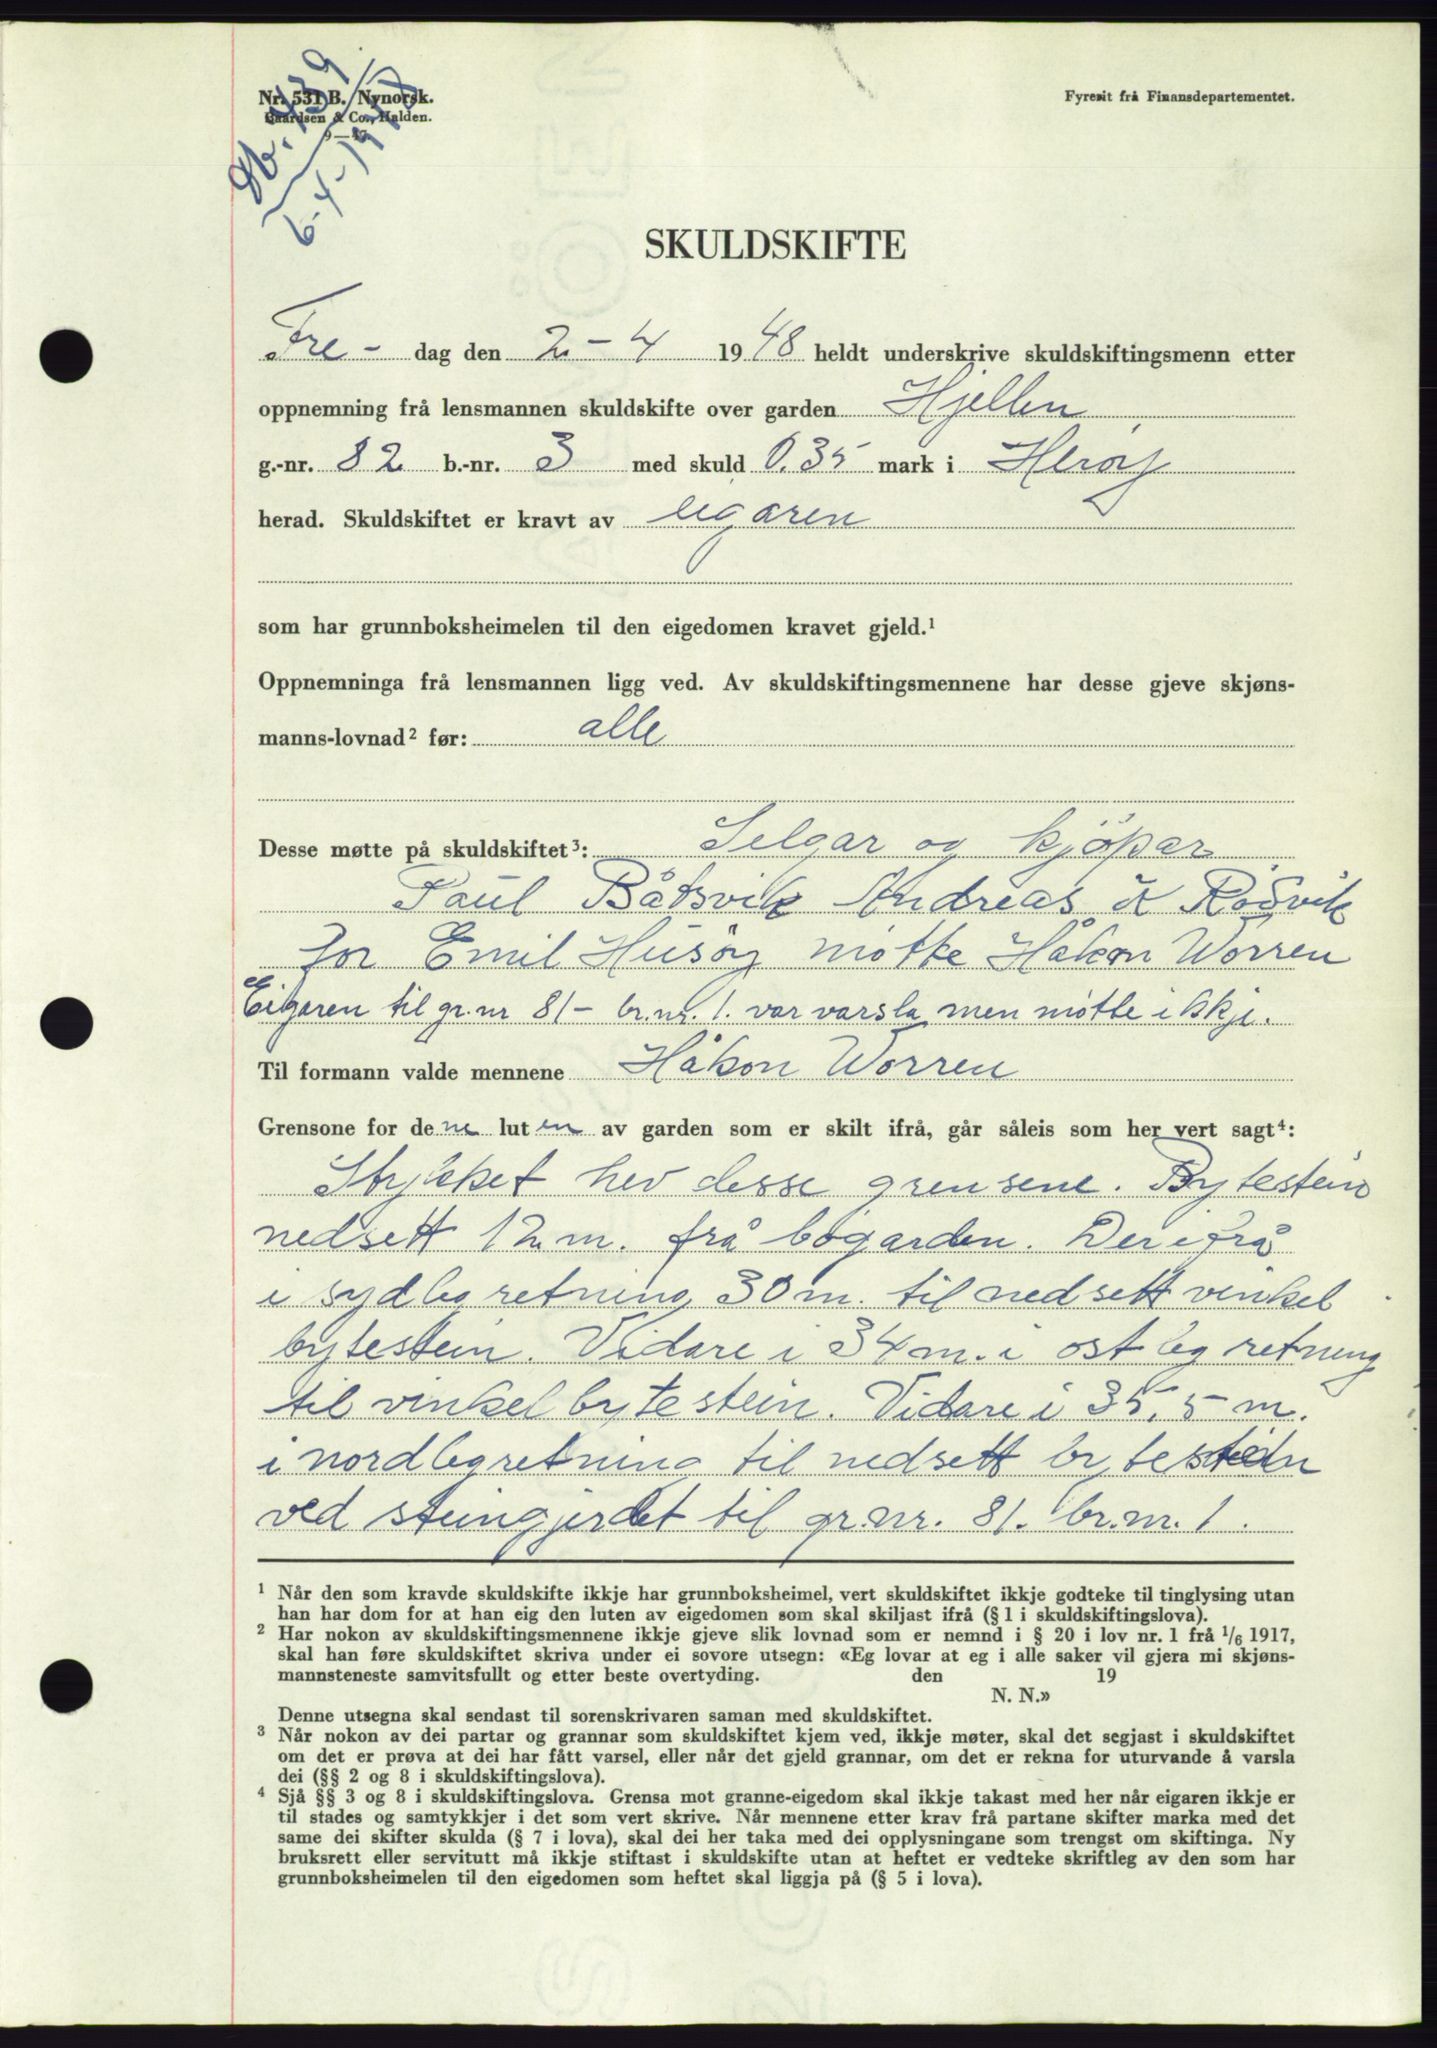 Nr. 531 B. Nynorsk.
Gaardsen & Co., Halden.
9—47
Fyresit frå Finansdepartementet.
Nb. 439
6-4-1948
SKULDSKIFTE
Fre- dag den 2.-4 1948 heldt underskrive skuldskiftingsmenn etter
oppnemning frå lensmannen skuldskifte over garden Hjellen
g.-nr. 82 b.-nr. 3 med skuld 0.35 mark i Herøy
herad. Skuldskiftet er kravt av eigaren
som har grunnboksheimelen til den eigedomen kravet gjeld.¹
Oppnemninga frå lensmannen ligg ved. Av skuldskiftingsmennene har desse gjeve skjøns-
manns-lovnad² før: alle
Desse møtte på skuldskiftet³: Selgar og kjöpar
Paul Båtsvik Andreas K Rødvik
for Emil Husøy møtte Håkon Worren
Eigaren til gr.nr 81- br.nr. 1. var varsla men møtte ikkje.
Til formann valde mennene Håkon Worren
Grensone for dene luten av garden som er skilt ifrå, går såleis som her vert sagt⁴:
Stykket hev desse grensene. Bytestein
nedsett 12 m. frå bøgarden. Derifrå
i sydleg retning 30 m. til nedsett vinkel
bytestein. Vidare i 34 m. i ostleg retning
til vinkel bytestein. Vidare i 35,5 m.
i nordleg retning til nedsett bytestein
ved steingjerdet til gr.nr. 81. br.nr. 1.
¹ Når den som kravde skuldskifte ikkje har grunnboksheimel, vert skuldskiftet ikkje godteke til tinglysing utan
han har dom for at han eig den luten av eigedomen som skal skiljast ifrå (§ 1 i skuldskiftingslova).
² Har nokon av skuldskiftingsmennene ikkje gjeve slik lovnad som er nemnd i § 20 i lov nr. 1 frå 1/6 1917,
skal han føre skuldskiftet skriva under ei sovore utsegn: «Eg lovar at eg i alle saker vil gjera mi skjøns-
mannsteneste samvitsfullt og etter beste overtyding. den 19
N. N.»
Denne utsegna skal sendast til sorenskrivaren saman med skuldskiftet.
³ Når nokon av dei partar og grannar som skuldskiftet kjem ved, ikkje møter, skal det segjast i skuldskiftet
om det er prøva at dei har fått varsel, eller når det gjeld grannar, om det er rekna for uturvande å varsla
dei (§§ 2 og 8 i skuldskiftingslova).
⁴ Sjå §§ 3 og 8 i skuldskiftingslova. Grensa mot granne-eigedom skal ikkje takast med her når eigaren ikkje er
til stades og samtykkjer i det som vert skrive. Når mennene etter krav frå partane skifter marka med det
same dei skifter skulda (§ 7 i lova), skal dei her taka med dei opplysningane som trengst om skiftinga. Ny
bruksrett eller servitutt må ikkje stiftast i skuldskifte utan at heftet er vedteke skriftleg av den som har
grunnboksheimelen til den eigedomen som heftet skal liggja på (§ 5 i lova).